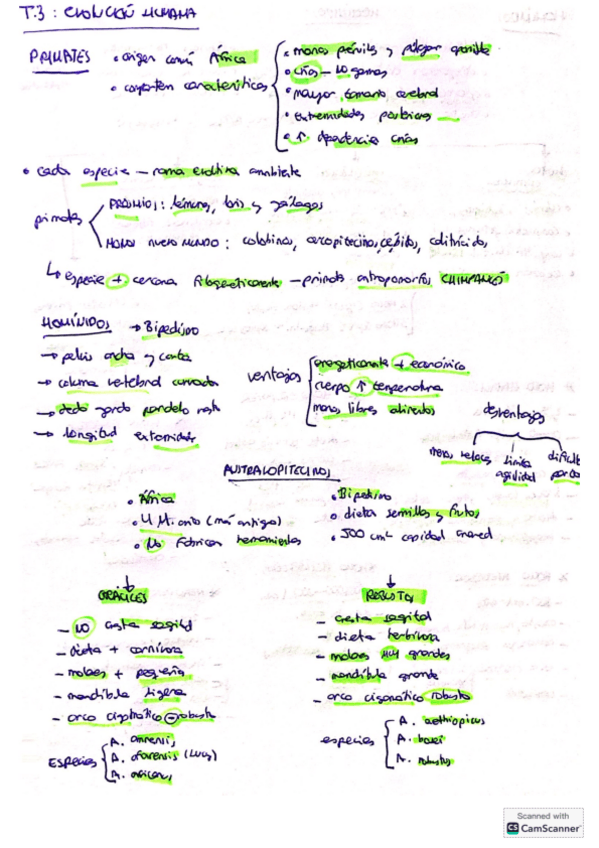 T.3 : EVOLUCIÓN HUMANA
PRIMATES
• origen común África
• comparten características
• manos prénsiles y pulgar oponible
• crías - nº gamas
• mayor tamaño cerebral
• extremidades posteriores
• ↑ dependencias crías
• cada especie - rama evolutiva ambiente
primates
PROSIMIOS: lémures, loris y gálagos
MONOS NUEVO MUNDO: colobinos, cercopitecinos, cébidos, calitrícidos
↳ especie + cercana filogenéticamente - primates antropomorfos CHIMPANCÉS
HOMÍNIDOS → Bipedismo
→ pelvis ancha y corta
→ columna vertebral curvada
→ dedo gordo paralelo resto
→ longitud extremidades
ventajas
energéticamente + económico
cuerpo ↑ temperatura
manos libres alimentos
desventajas
menos veloces
limita agilidad
dificulta
AUSTRALOPITECINOS
• África
• 4 M. años (más antiguo)
• No fabrican herramientas
• Bipedismo
• dieta semillas y frutos
• 500 cm³ capacidad craneal
GRÁCILES
- NO cresta sagital
- dieta + carnívora
- molares + pequeños
- mandíbula ligera
- arco cigomático - robusto
ESPECIES
A. anamensis
A. afarensis (Lucy)
A. africanus
ROBUSTOS
- cresta sagital
- dieta herbívora
- molares MUY grandes
- mandíbula grande
- arco cigomático robusto
especies
A. aethiopicus
A. boisei
A. robustus
Scanned with
CS CamScanner